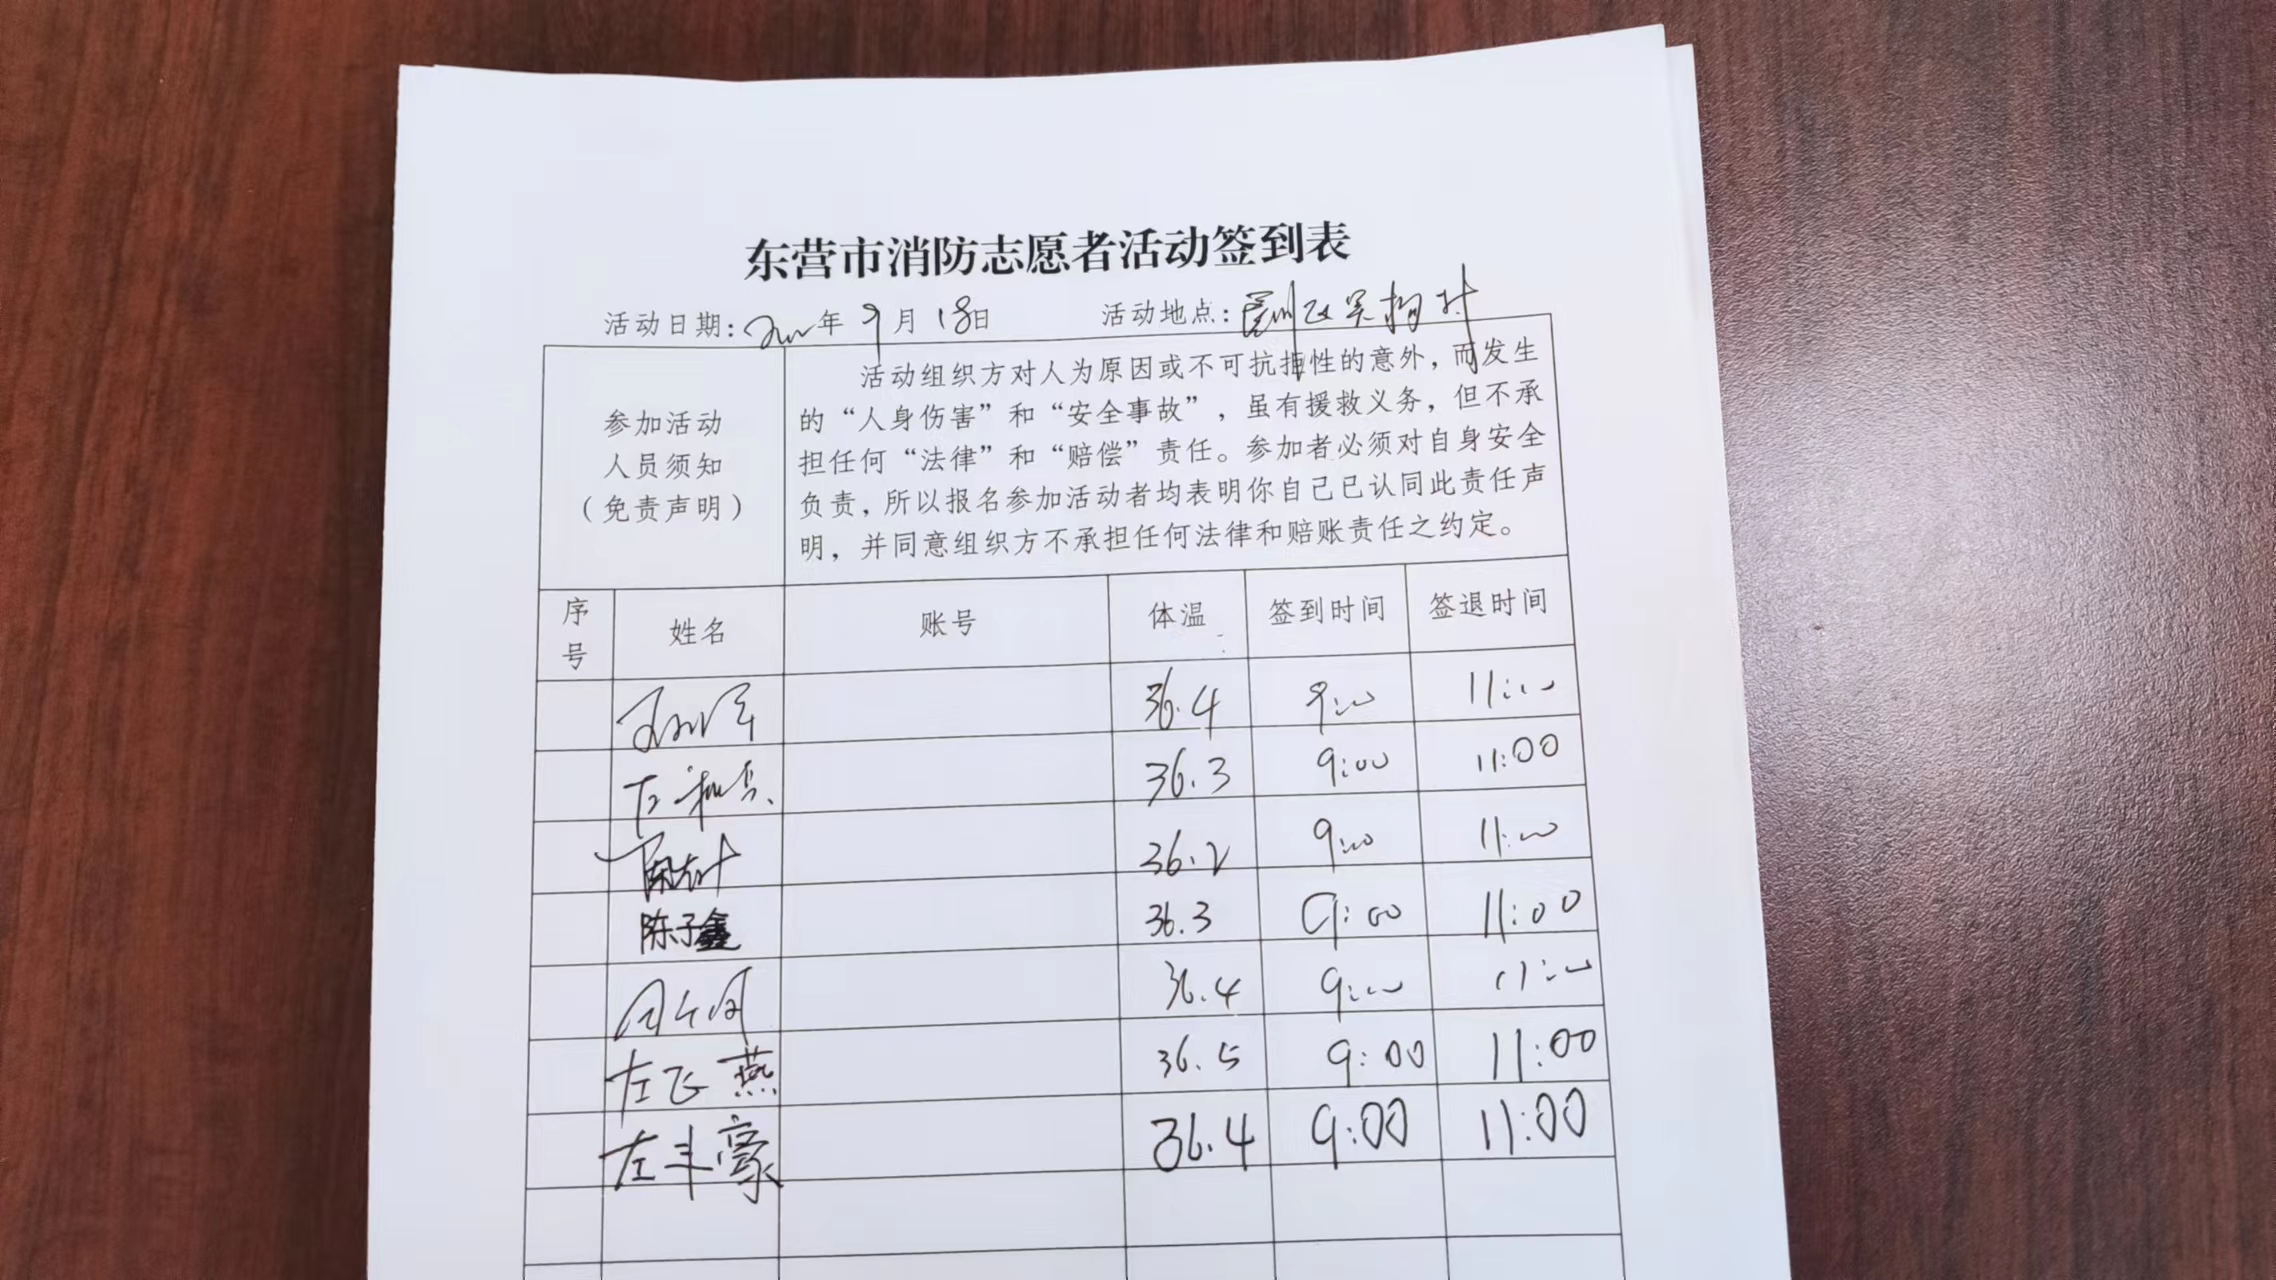 东营市消防志愿者活动签到表
活动日期: 年 9月 18日 活动地点:
参加活动
人员须知
(免责声明)
活动组织方对人为原因或不可抗拒性的意外,而发生
的“人身伤害”和“安全事故”,虽有援救义务,但不承
担任何“法律”和“赔偿”责任。参加者必须对自身安全
负责,所以报名参加活动者均表明你自己已认同此责任声
明,并同意组织方不承担任何法律和赔账责任之约定。
序号 姓名 账号 体温 签到时间 签退时间
36.4 9:00 11:00
36.3 9:00 11:00
36.2 9:00 11:00
陈子鑫 36.3 9:00 11:00
36.4 9:00 11:00
左飞燕 36.5 9:00 11:00
左丰豪 36.4 9:00 11:00